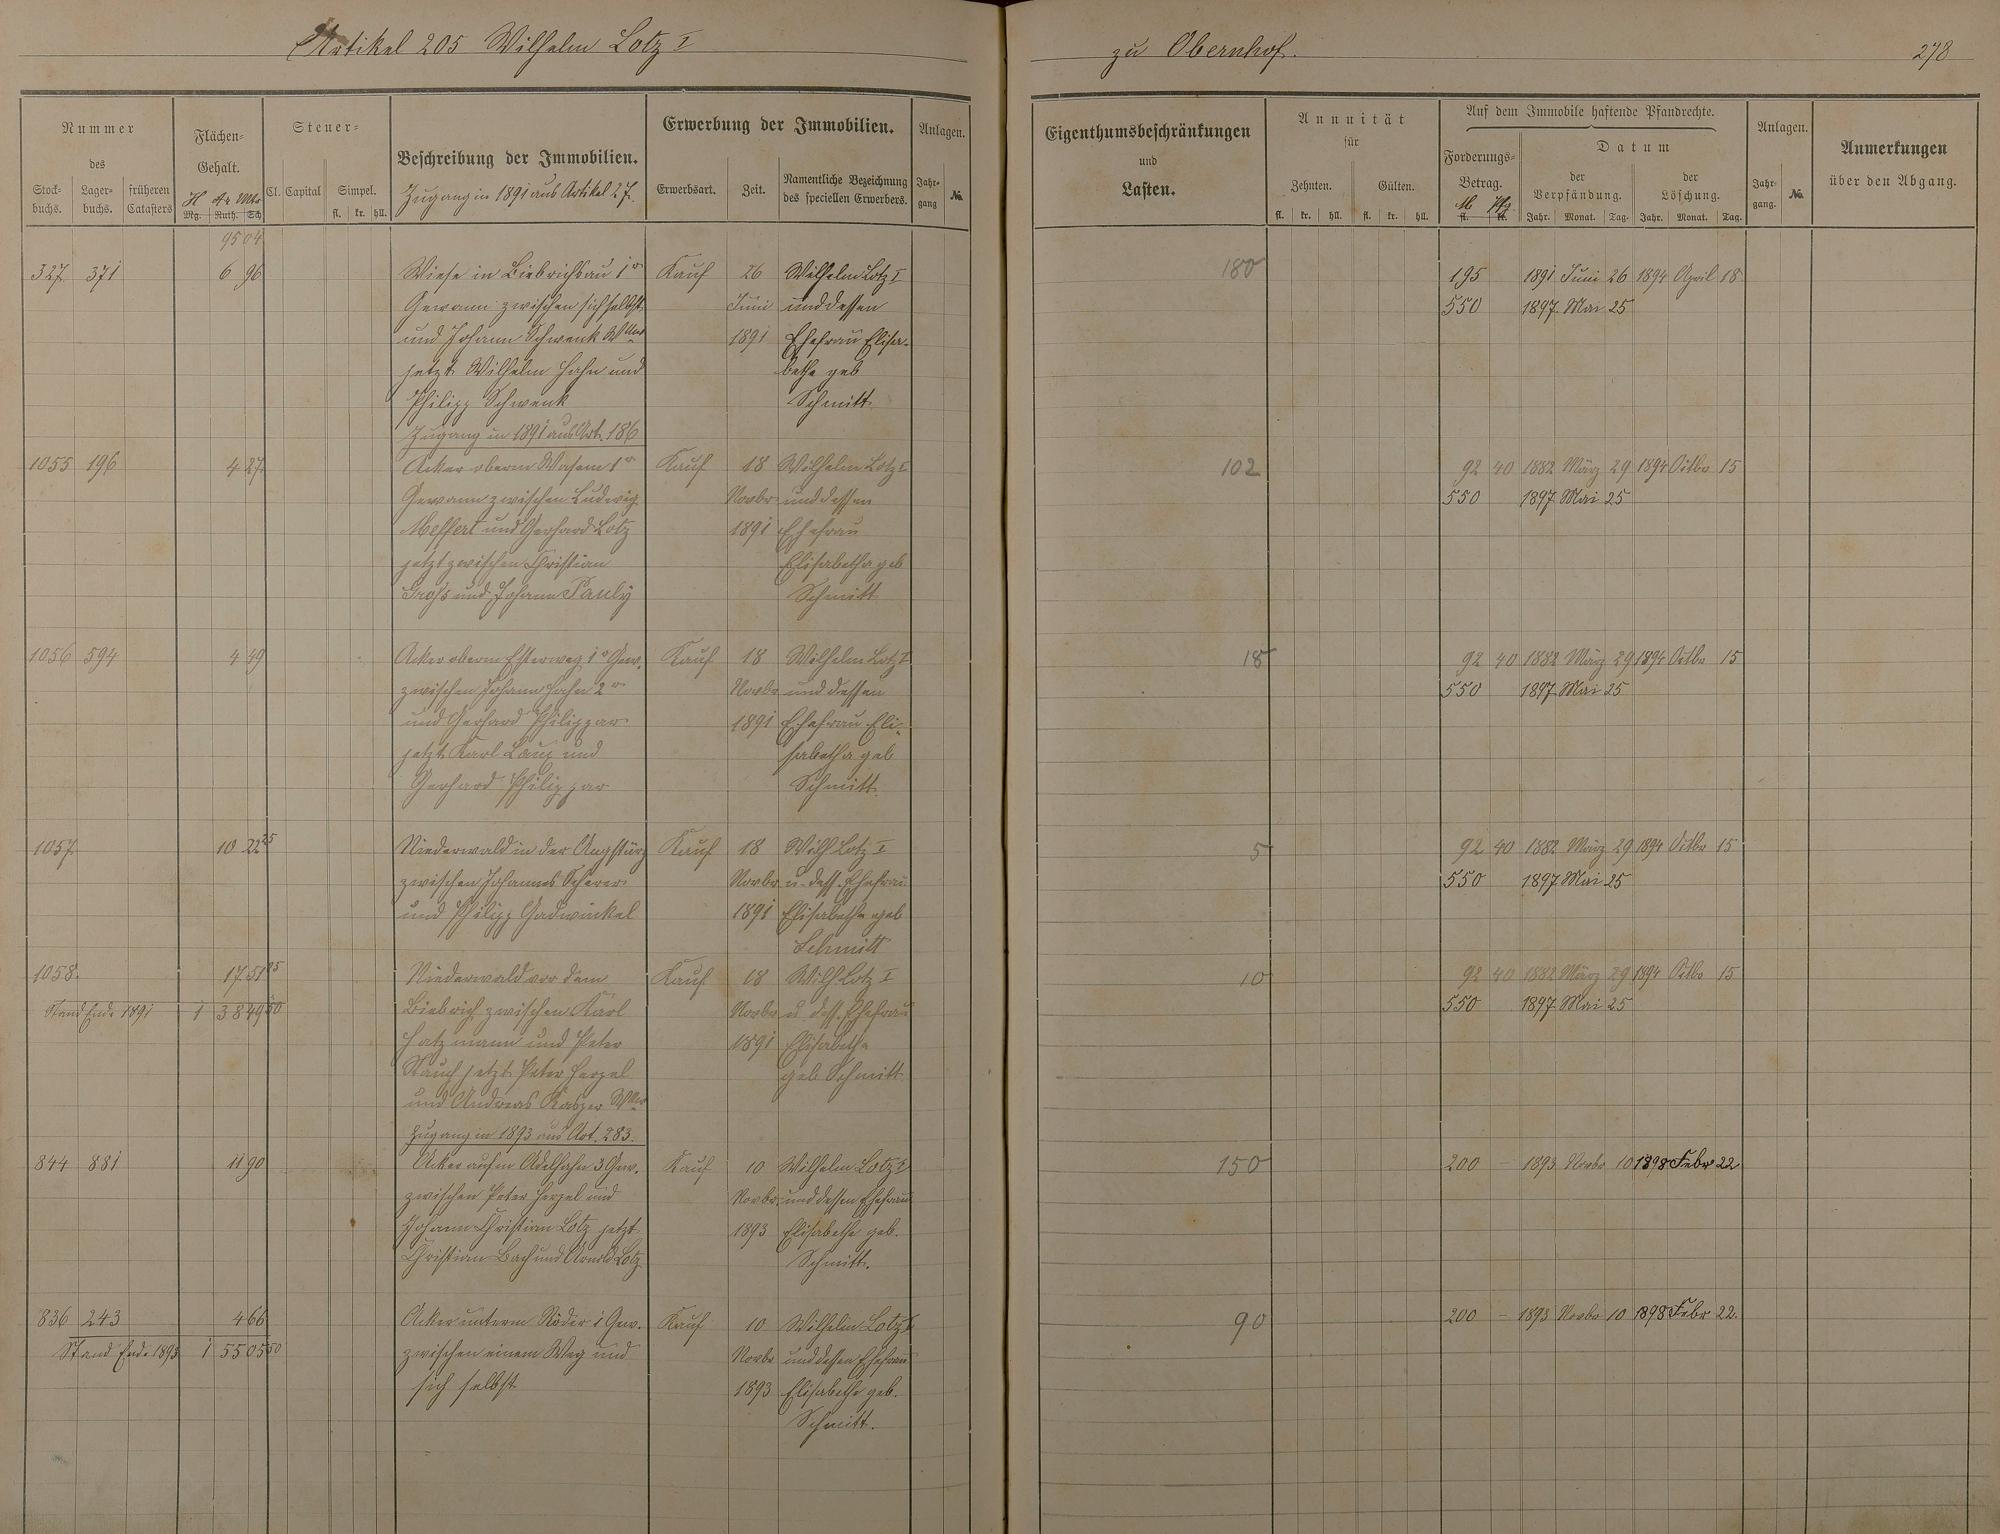 Artikel 205 Wilhelm Lotz I
zu Obernhof.
278
Nummer
des
Stock-
buchs.
Lager-
buchs.
früheren
Catasters
Flächen-
Gehalt.
H Ar Mtr
Mg. Ruth. Sch
Steuer-
Cl. Capital Simpel.
fl. kr. hll.
Beschreibung der Immobilien.
Zugang in 1891 aus Artikel 27.
Erwerbung der Immobilien.
Erwerbsart. Zeit.
Namentliche Bezeichnung
des speciellen Erwerbers.
Anlagen.
Jahr-
gang
No.
Eigenthumsbeschränkungen
und
Lasten.
Annuität
für
Zehnten. Gülten.
fl. kr. hll. fl. kr. hll.
Auf dem Immobile haftende Pfandrechte.
Forderungs-
Betrag.
M Pfg
Datum
der
Verpfändung.
der
Löschung.
Jahr. Monat. Tag. Jahr. Monat. Tag.
Anlagen.
Jahr-
gang.
No.
Anmerkungen
über den Abgang.
95 04
327 371 6 96 Wiese in Biebrichsau 1r Kauf 26 Wilhelm Lotz I 180 195 1891 Juni 26 1894 April 18
Gewann zwischen sich selbst Juni und dessen 550 1897 Mai 25
und Johann Schwenk Wwe 1891 Ehefrau Elisa-
jetzt Wilhelm Hahn und bethe geb
Philipp Schwenk Schmitt
Zugang in 1891 aus Art. 186
1055 196 4 27 Acker oberm Wasem 1r Kauf 18 Wilhelm Lotz I 102 92 40 1882 März 29 1894 Octbr 15
Gewann zwischen Ludwig Novbr und dessen 550 1897 Mai 25
Meffert und Gerhard Lotz 1891 Ehefrau
jetzt zwischen Christian Elisabetha geb
Gross und Johann Pauly Schmitt
1056 594 4 49 Acker oberm Esterweg 1r Gew. Kauf 18 Wilhelm Lotz I 18 92 40 1882 März 29 1894 Octbr 15
zwischen Johann Hahn 2r Novbr und dessen 550 1897 Mai 25
und Gerhard Philippar 1891 Ehefrau Eli-
jetzt Karl Laux und sabetha geb
Gerhard Philippar Schmitt.
1057 10 22 25 Niederwald in der Kauf 18 Wilh Lotz I 5 92 40 1882 März 29 1894 Octbr 15
zwischen Johannes Scherer Novbr u. dess. Ehefrau 550 1897 Mai 25
und Philipp 1891 Elisabetha geb
Schmitt
1058. 17 51 25 Niederwald vor dem Kauf 18 Wilh Lotz I 10 92 40 1882 März 29 1894 Octbr 15
Stand Ende 1891 1 38 49 50 Biebrich zwischen Karl Novbr u. dess. Ehefrau 550 1897 Mai 25
Hatzmann und Peter 1891 Elisabetha
Stauch jetzt Peter Herzel geb Schmitt
und Andreas Kasper Wwe
Zugang in 1893 aus Art. 283.
844 881 11 90 Acker aufm Adelhahn 3 Gew. Kauf 10 Wilhelm Lotz I 150 200 – 1893 Novbr 10 1898 Febr 22
zwischen Peter Herzel und Novbr. und dessen Ehefrau
Johann Christian Lotz jetzt 1893 Elisabethe geb.
Christian Bach und Arnold Lotz Schmitt.
836 243 4 66 Acker unterm Röder 1 Gew. Kauf 10 Wilhelm Lotz I 90 200 – 1893 Novbr 10 1898 Febr 22.
Stand Ende 1893 1 55 05 50 zwischen einem Weg und Novbr und dessen Ehefrau
sich selbst 1893 Elisabethe geb.
Schmitt.